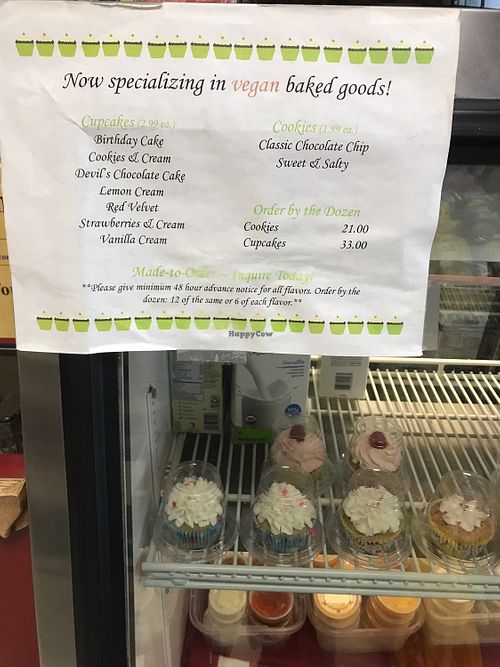 Now specializing in vegan baked goods!
Cupcakes (2.99 ea.)
Birthday Cake
Cookies & Cream
Devil's Chocolate Cake
Lemon Cream
Red Velvet
Strawberries & Cream
Vanilla Cream
Cookies (1.99 ea.)
Classic Chocolate Chip
Sweet & Salty
Order by the Dozen
Cookies 21.00
Cupcakes 33.00
Made-to-Order – Inquire Today!
**Please give minimum 48 hour advance notice for all flavors. Order by the
dozen: 12 of the same or 6 of each flavor.**
HappyCow